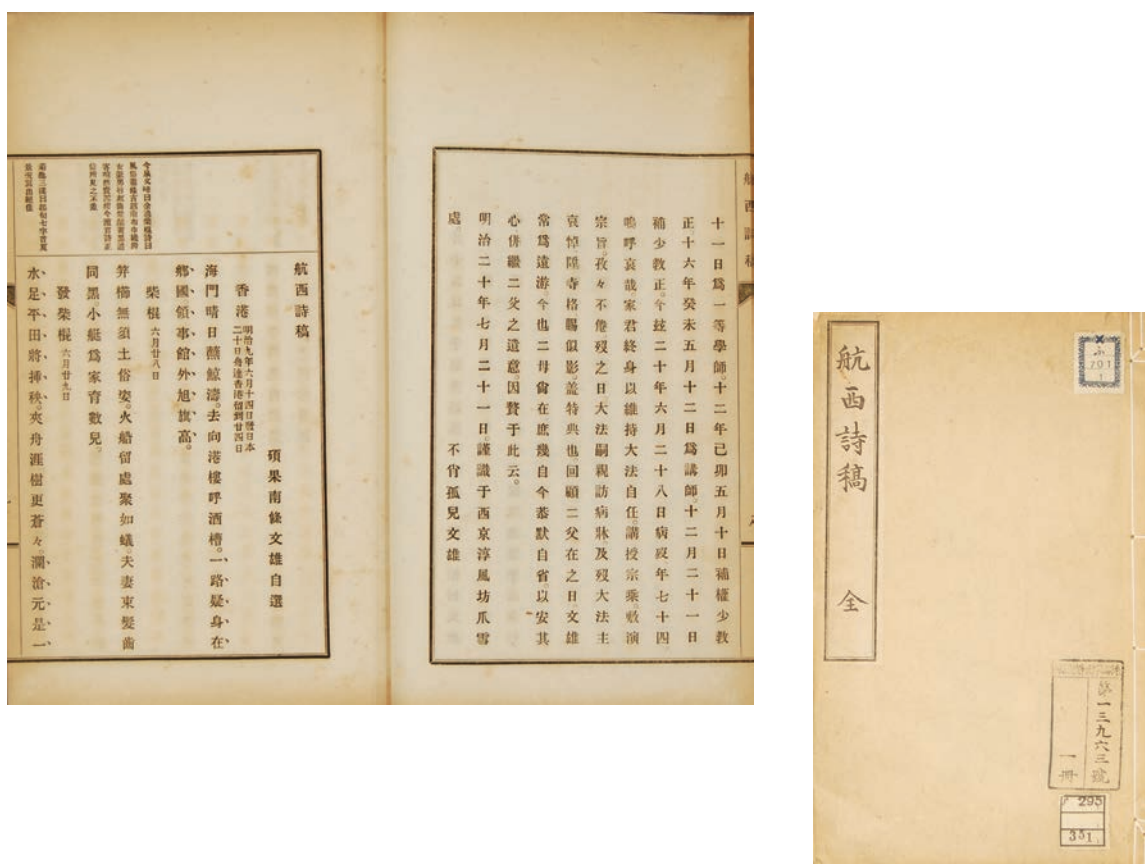 十一日為一等學師。十二年己卯五月十日補權少教
正十六年癸未五月十二日為講師。十二月二十一日
補少教正。今玆二十年六月二十八日病歿。年七十四。
嗚呼哀哉。家君終身以維持大法自任。講授宗乘。敷演
宗旨。孜々不倦。歿之日大法嗣親訪病牀。及歿大法主
哀悼。陞寺格賜似影。蓋特典也。回顧二父在之日。文雄
常爲遠游。今也二母尙在。庶幾自今恭默自省。以安其
心。併繼二父之遺意。因贅于此云。
明治二十年七月二十一日。謹識于西京淳風坊爪雪
處
不肖孤兒文雄
航西詩稿
碩果南條文雄自選
香港 明治九年六月十四日發日本
二十日舟達香港留到廿四日
海門晴日蘸鯨濤。去向港樓呼酒槽。一路疑身在
鄉國。領事館外旭旗高。
柴棍 六月廿八日
笄櫛無須土俗姿。火船留處聚如蟻。夫妻束髮齒
同黑。小艇爲家育數兒。
發柴棍 六月廿九日
水足平田將挿秧。夾舟涯樹更蒼々。瀾滄元是一
航西詩稿 全
ふ
701
1
第一三九六三號
一冊
295
351